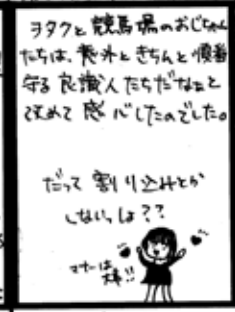 ヲタクと競馬場のおじちゃん
たちは、意外ときちんと順番
守る良識人たちだなぁと
改めて感心したのでした。
だって割り込みとか
しないっしょ??
マナーは
大事!!